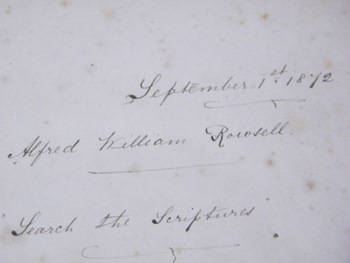 September 1st. 1872
Alfred William Rowsell.
Search the Scriptures